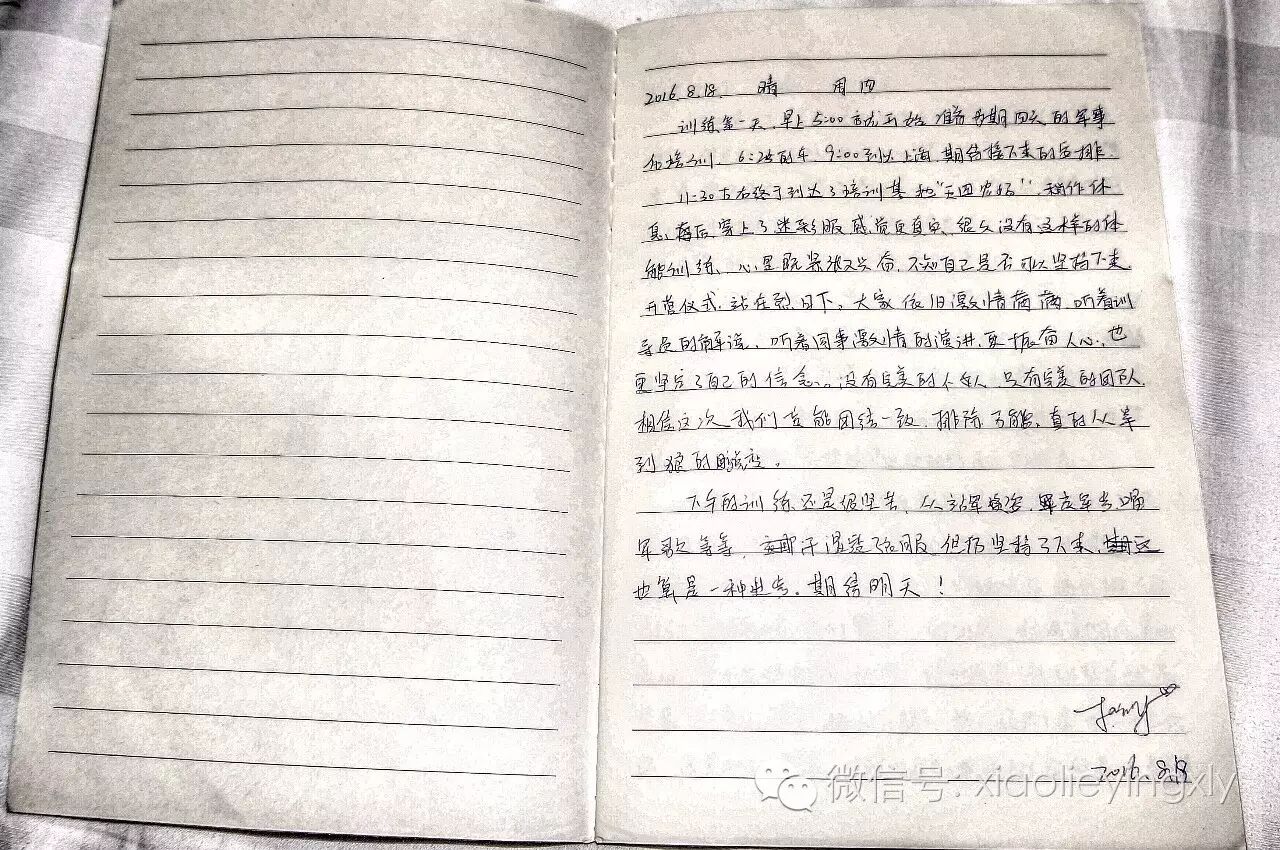 2016.8.18. 晴 周四
训练第一天,早上5:00就开始准备为期四天的军事
化培训,6:25的车,9:00到达上海,期待接下来的安排.
11:30左右终于到达了培训基地"天田农场",稍作休
息,午后穿上了迷彩服感觉更真实,很久没有这样的体
能训练,心里既紧张又兴奋,不知自己是否可以坚持下来.
开营仪式,站在烈日下,大家依旧激情满满,听着训
导员的解读,听着同事激情的演讲,更振奋人心,也
更坚定了自己的信念。没有完美的个人,只有完美的团队
相信这次我们能团结一致,排除万难,真的从羊
到狼的蜕变。
下午的训练还是很坚苦,从站军姿,军唱
军歌等等,汗湿透了衣服,但仍坚持了下来,
也算是一种进步.期待明天!
2016.8.18
微信号: xiaolieyingxly